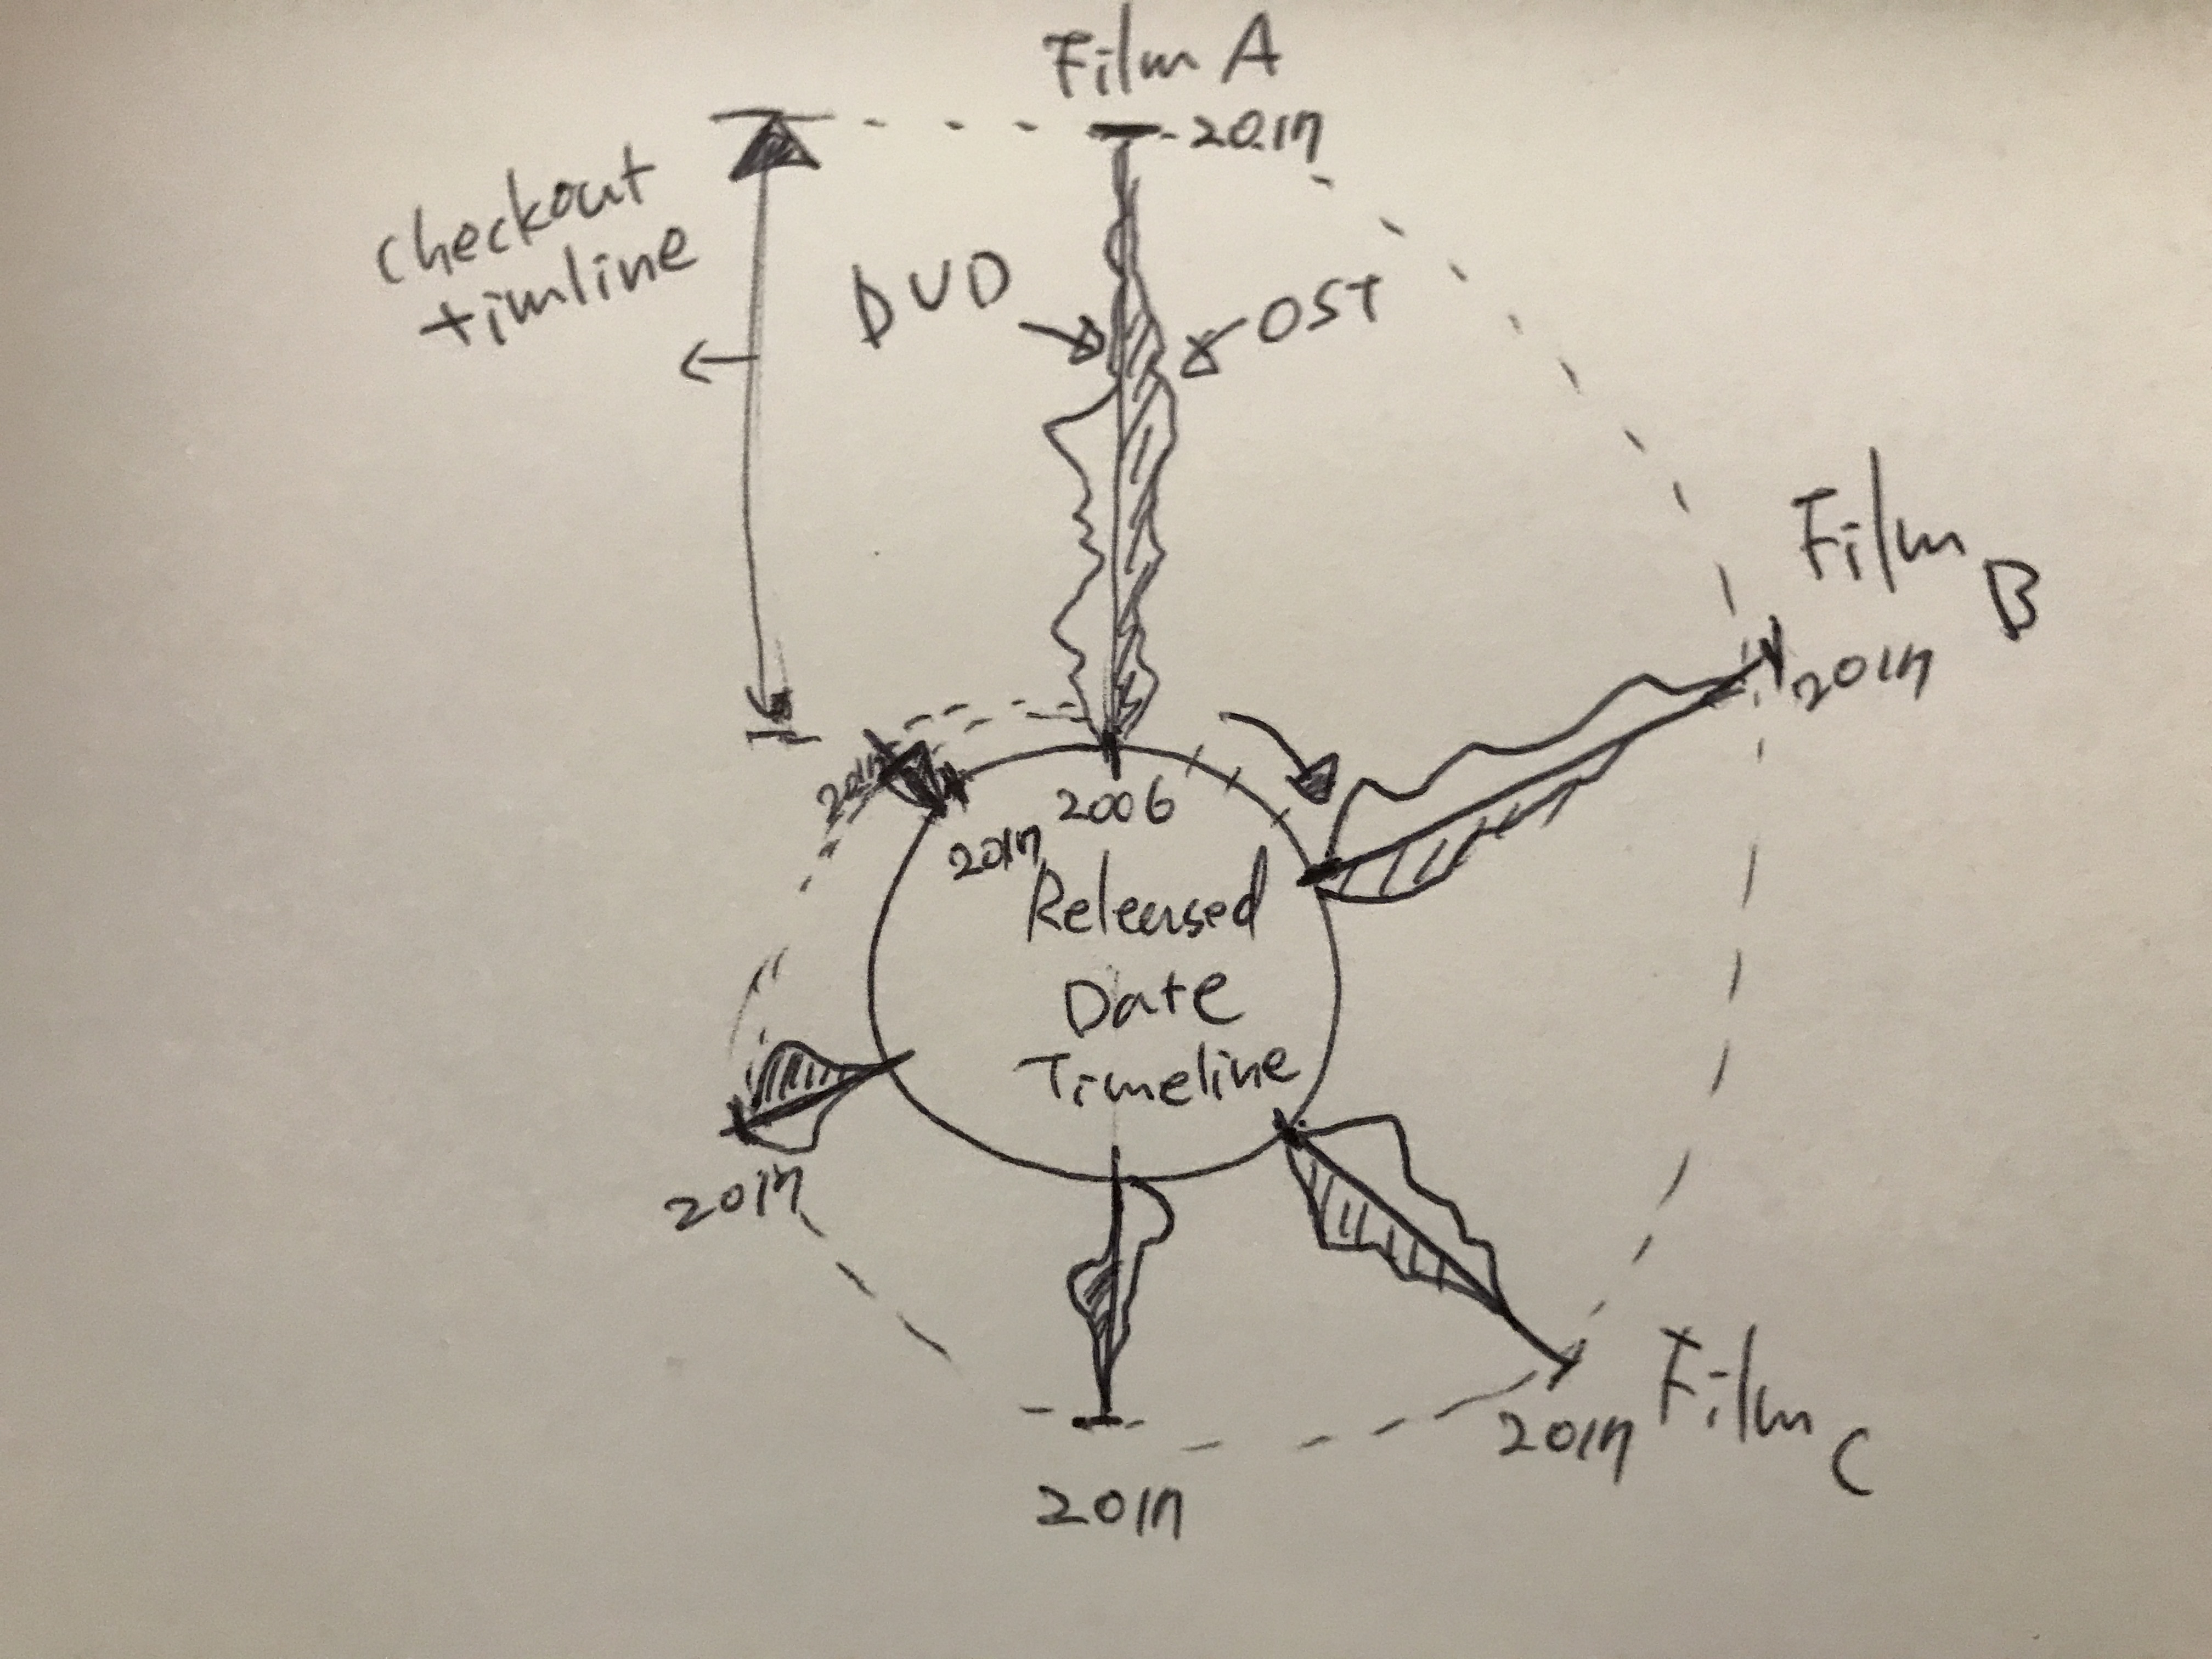 Film A
2017
checkout
timline
DVD
OST
Film
B
2017
2017
2006
2017
Released
Date
Timeline
2017
2017
Film
C
2017